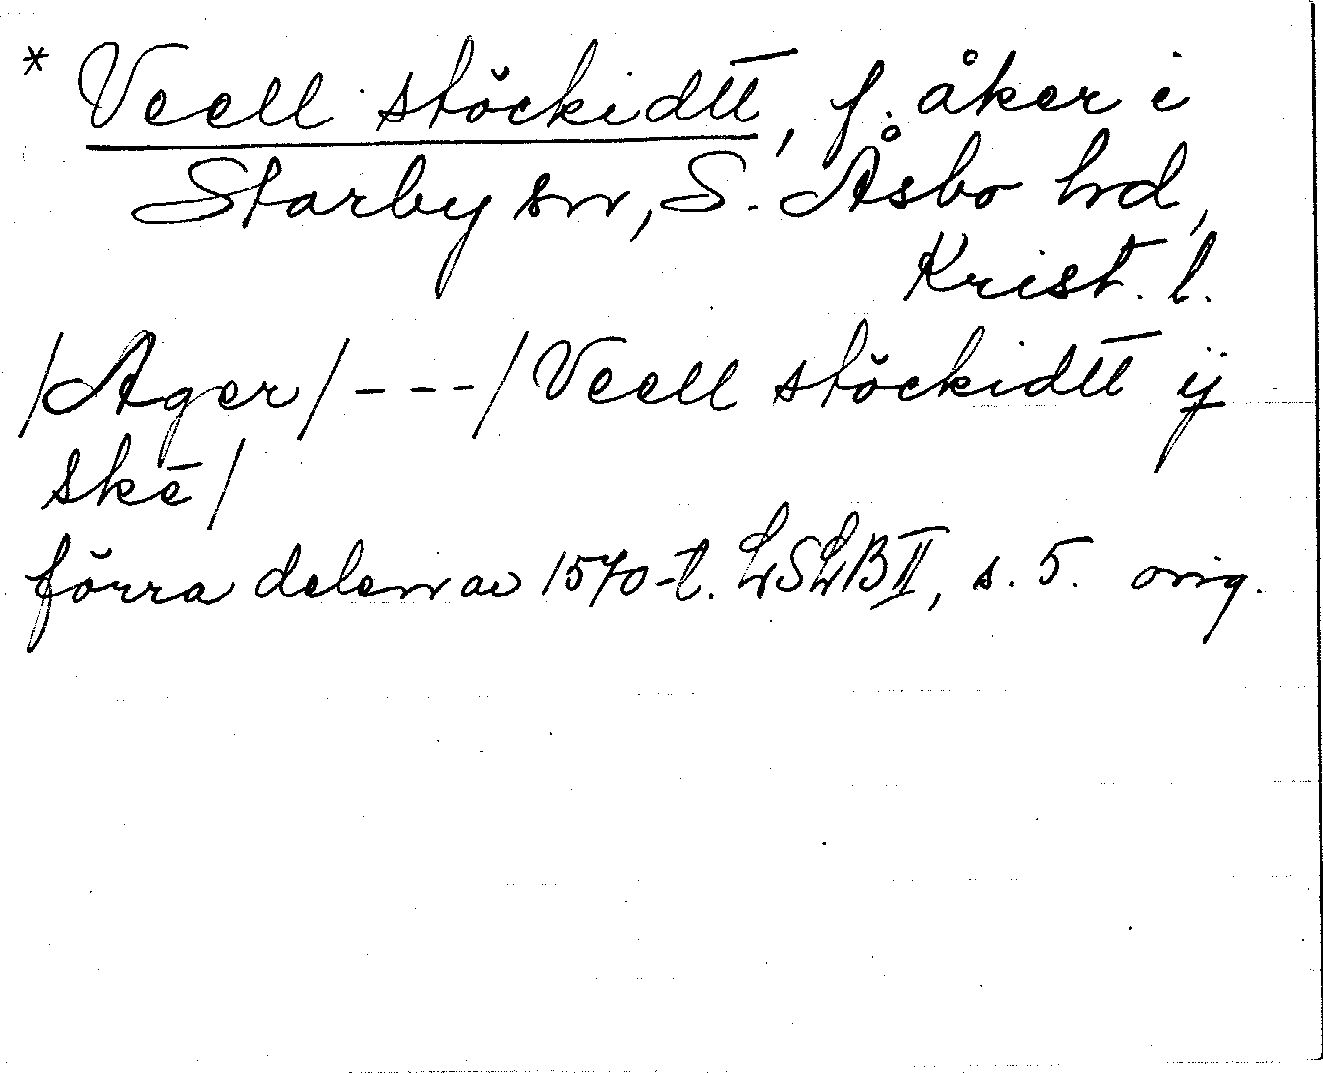 * Veell stöckidtt, f. åker i
Starby sn, S. Åsbo hd,
Krist. l.
/Ager/ - - - / Veell stöckidtt ij
skē/
förra delen av 1570-t. LSLB II, s. 5. orig.